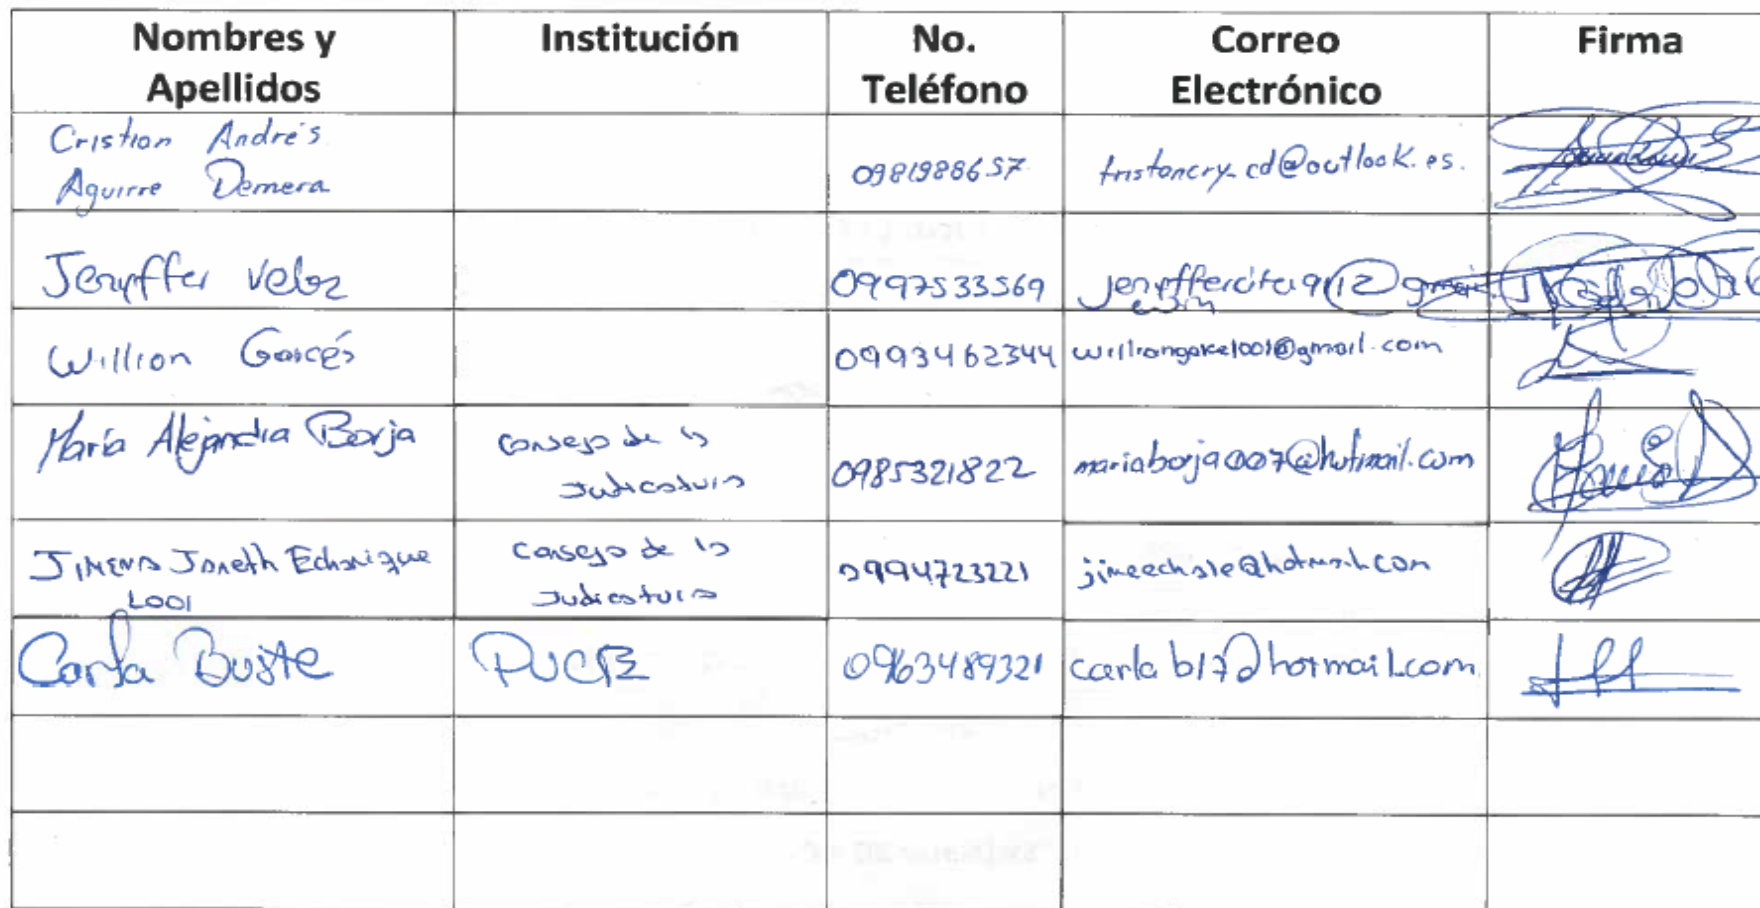 Nombres y Apellidos Institución No. Teléfono Correo Electrónico Firma
Cristian Andrés
Aguirre Demera 0981988657 tristancry_cd@outlook.es.
Jenyffer Veloz 0997533569 jenyffercita9112@gmai
William Garcés 0993462344
María Alejandra Borja Consejo de la Judicatura 0985321822 mariaborja007@hotmail.com
Jimena Janeth Echanique Consejo de la Judicatura 0994723221
Carla Buste PUCE 0963489321 carlab17@hotmail.com